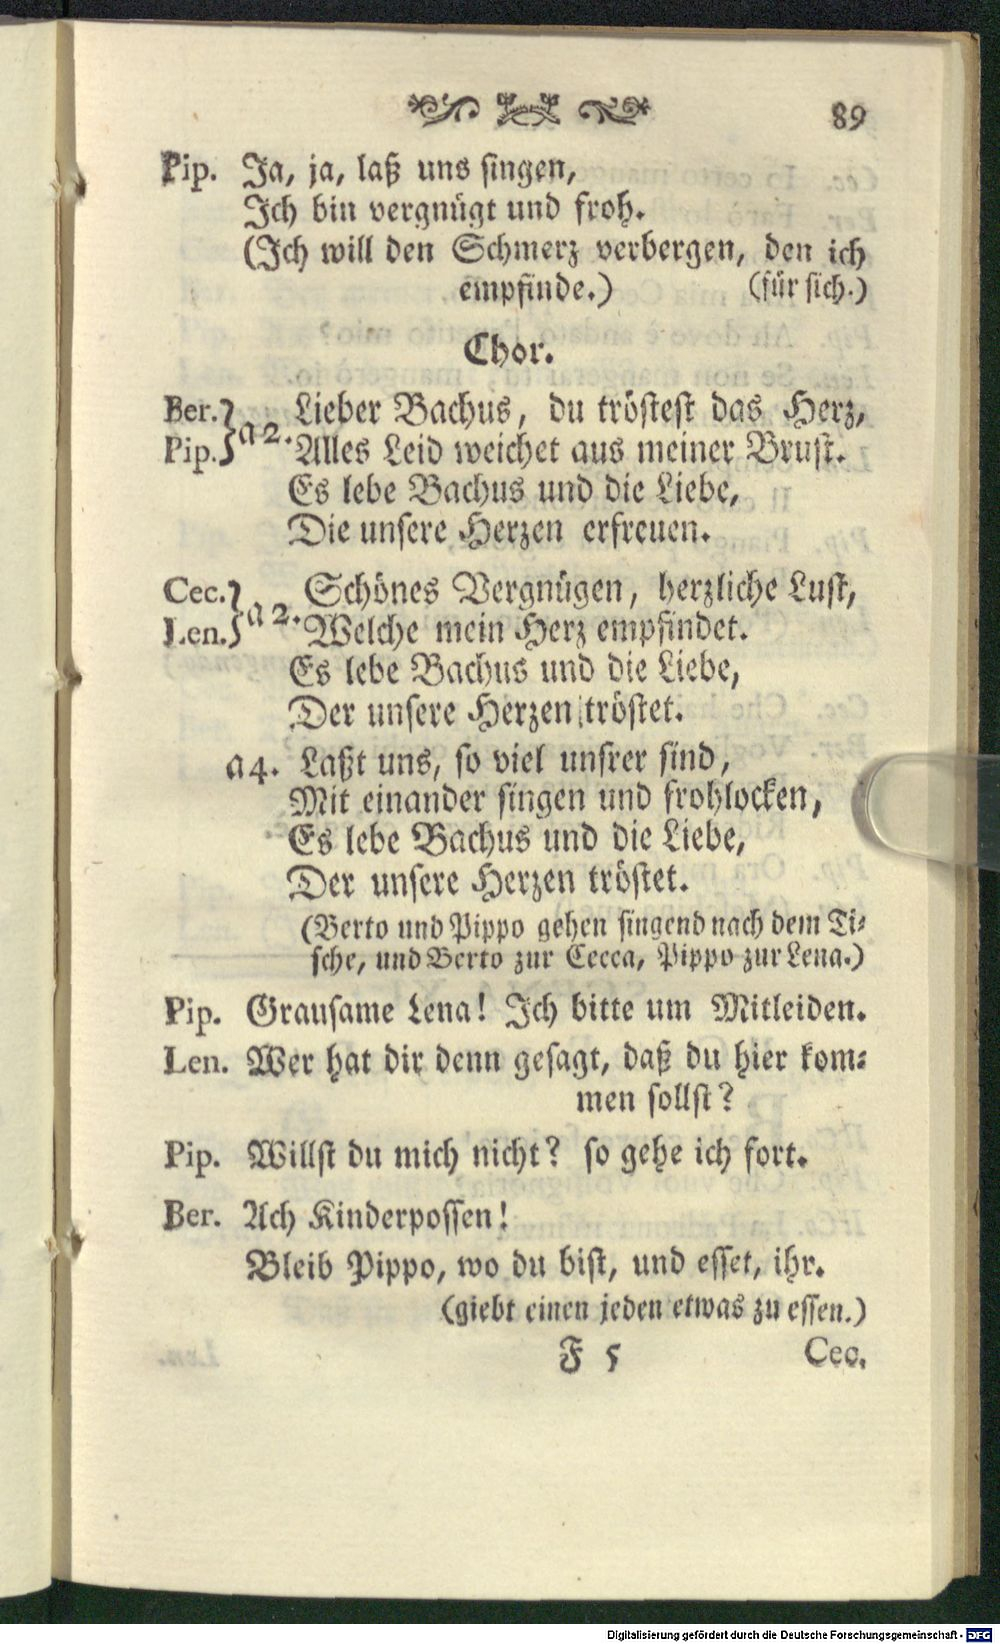 89
Pip. Ja, ja, laß uns singen,
Ich bin vergnügt und froh.
(Ich will den Schmerz verbergen, den ich
empfinde.) (für sich.)
Chor.
Ber. } a 2. Lieber Bachus, du tröstest das Herz,
Pip. } Alles Leid weichet aus meiner Brust.
Es lebe Bachus und die Liebe,
Die unsere Herzen erfreuen.
Cec. } a 2. Schönes Vergnügen, herzliche Lust,
Len. } Welche mein Herz empfindet.
Es lebe Bachus und die Liebe,
Der unsere Herzen tröstet.
a4. Laßt uns, so viel unsrer sind,
Mit einander singen und frohlocken,
Es lebe Bachus und die Liebe,
Der unsere Herzen tröstet.
(Berto und Pippo gehen singend nach dem Ti-
sche, und Berto zur Cecca, Pippo zur Lena.)
Pip. Grausame Lena! Ich bitte um Mitleiden.
Len. Wer hat dir denn gesagt, daß du hier kom-
men sollst?
Pip. Willst du mich nicht? so gehe ich fort.
Ber. Ach Kinderpossen!
Bleib Pippo, wo du bist, und esset, ihr.
(giebt einen jeden etwas zu essen.)
F 5 Cec.
Digitalisierung gefördert durch die Deutsche Forschungsgemeinschaft - DFG